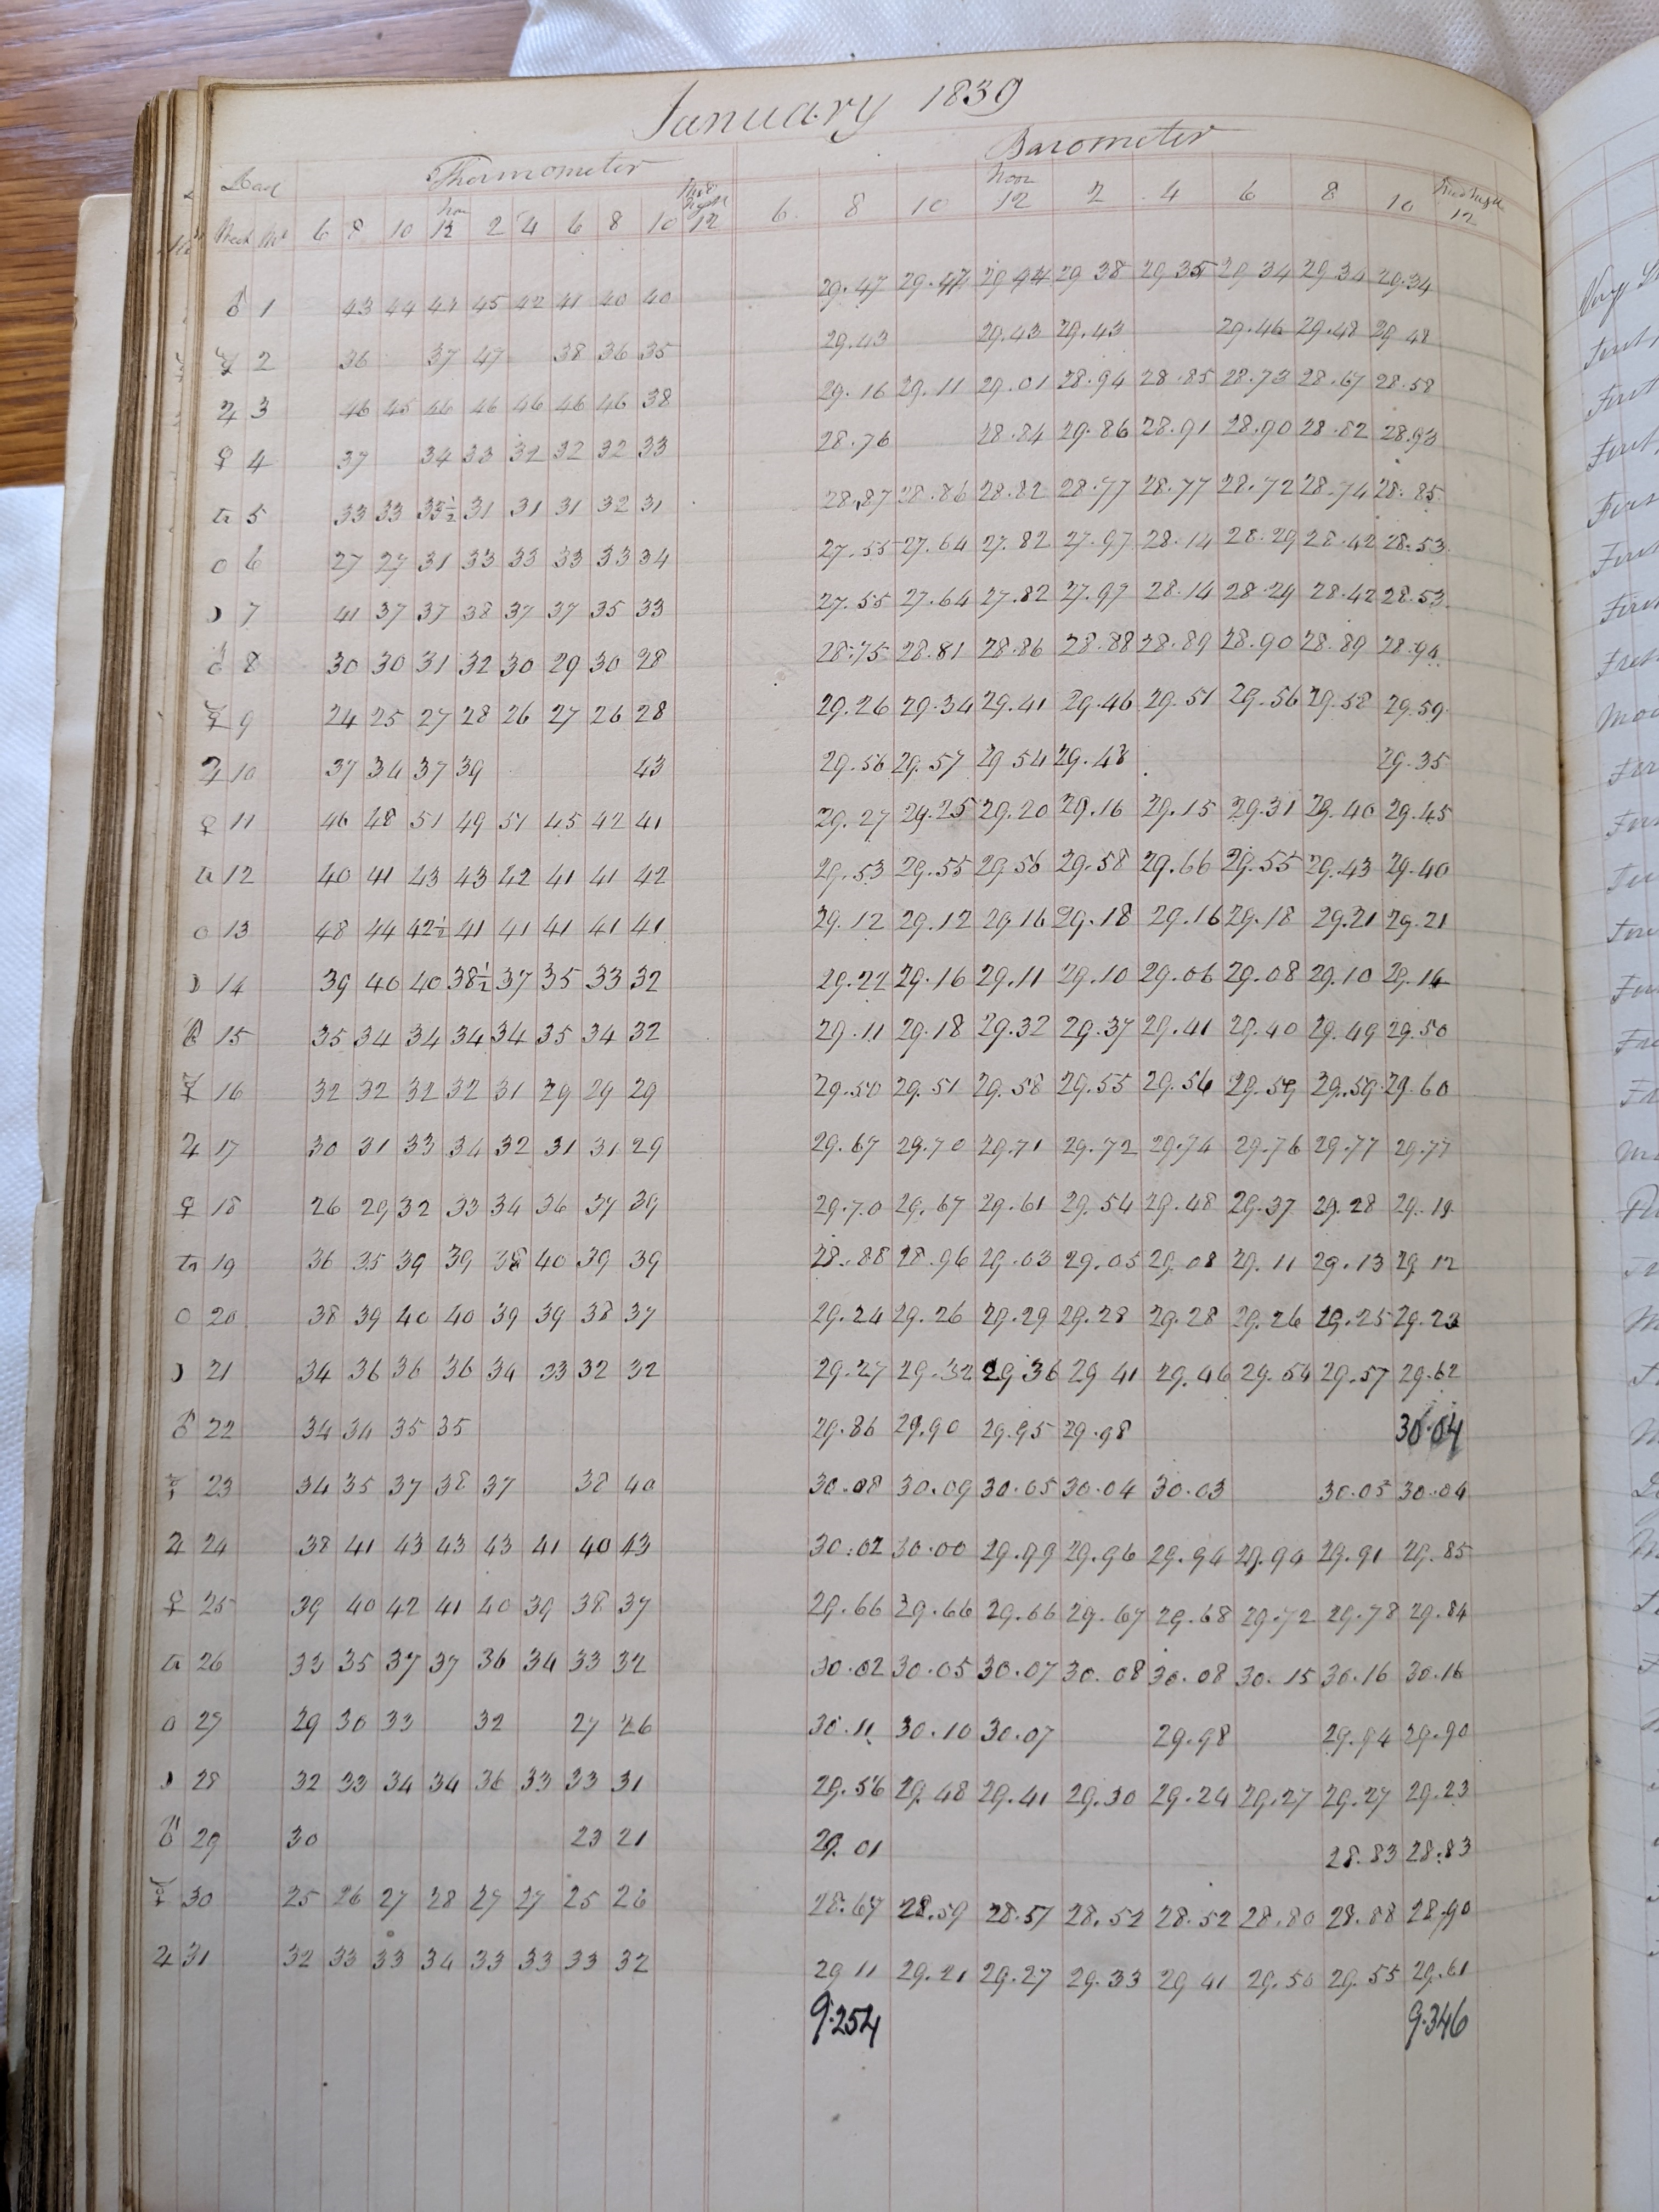 January 1839
Thermometer Barometer
Week 6 8 10 12 2 4 6 8 10 12 6. 8 10 Noon 12 2 4 6 8 10 12
♂ 1 43 44 44 45 42 41 40 40 29.47 29.47 29 44 29 38 29 35 29 34 29 34 29.34
☿ 2 36 37 47 38 36 35 29.43 29.43 29.43 29.46 29.48 29 48
♃ 3 46 45 46 46 46 46 46 38 29.16 29.11 29.01 28.94 28.85 28.73 28.67 28.58
♀ 4 37 34 33 32 32 32 33 28.76 28.84 29.86 28.91 28.90 28.82 28.93
♄ 5 33 33 35½ 31 31 31 32 31 28.87 28.86 28.82 28.77 28.77 28.72 28.74 28.85
☉ 6 27 27 31 33 33 33 33 34 27.55 27.64 27.82 27.97 28.14 28.29 28.42 28.53
☽ 7 41 37 37 38 37 37 35 33 27.55 27.64 27.82 27.97 28.14 28.29 28.42 28.53
♂ 8 30 30 31 32 30 29 30 28 28.75 28.81 28.86 28.88 28.89 28.90 28.89 28.94
☿ 9 24 25 27 28 26 27 26 28 29.26 29.34 29.41 29.46 29.51 29.56 29.58 29.59
♃ 10 37 34 37 39 43 29.56 29.57 29 54 29.48 29.35
♀ 11 46 48 51 49 51 45 42 41 29.27 29.25 29.20 29.16 29.15 29.31 29.40 29.45
♄ 12 40 41 43 43 42 41 41 42 29.53 29.55 29 56 29.58 29.66 29.55 29.43 29.40
☉ 13 48 44 42½ 41 41 41 41 41 29.12 29.12 29 16 29.18 29.16 29.18 29.21 29.21
☽ 14 39 40 40 38½ 37 35 33 32 29.22 29.16 29.11 29.10 29.06 29.08 29.10 29.14
♂ 15 35 34 34 34 34 35 34 32 29.11 29.18 29.32 29.37 29.41 29.40 29.49 29.50
☿ 16 32 32 32 32 31 29 29 29 29.50 29.51 29.58 29.55 29.56 29.59 29.59 29.60
♃ 17 30 31 33 34 32 31 31 29 29.67 29.70 29.71 29.72 29.74 29.76 29.77 29.77
♀ 18 26 29 32 33 34 36 37 39 29.70 29.67 29.61 29.54 29.48 29.37 29.28 29.19
♄ 19 36 35 39 39 38 40 39 39 28.88 28.96 29.03 29.05 29.08 29.11 29.13 29 12
☉ 20 38 39 40 40 39 39 38 37 29.24 29.26 29.29 29.28 29.28 29.26 29.25 29.23
☽ 21 34 36 36 36 34 33 32 32 29.27 29.32 29 36 29 41 29.46 29.54 29.57 29.62
♂ 22 34 34 35 35 29.86 29.90 29.95 29.98 30.04
☿ 23 34 35 37 38 37 38 40 30.08 30.09 30.05 30.04 30.03 30.05 30.04
♃ 24 38 41 43 43 43 41 40 43 30.02 30.00 29.99 29.96 29.94 29.94 29.91 29.85
♀ 25 39 40 42 41 40 39 38 37 29.66 29.66 29.66 29.67 29.68 29.72 29.78 29.84
♄ 26 33 35 37 37 36 34 33 32 30.02 30.05 30.07 30.08 30.08 30.15 30.16 30.16
☉ 27 29 30 33 32 27 26 30.11 30.10 30.07 29.98 29.94 29.90
☽ 28 32 33 34 34 36 33 33 31 29.56 29.48 29.41 29.30 29.24 29.27 29.27 29.23
♂ 29 30 23 21 29.01 28.83 28.83
☿ 30 25 26 27 28 27 27 25 26 28.67 28.59 28.57 28.52 28.52 28.80 28.88 28.90
♃ 31 32 33 33 34 33 33 33 32 29 11 29.21 29.27 29.33 29 41 29.50 29.55 29.61
9.254 9.346